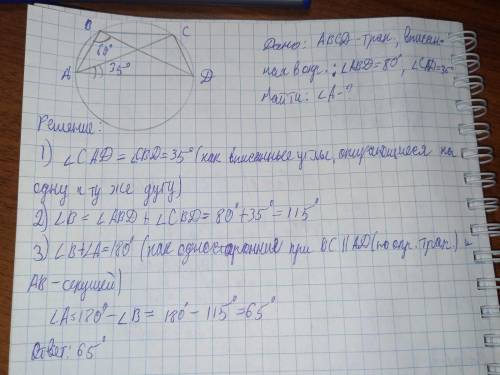 B
C
A
D
80°
35°
Дано: ABCD-трап, вписан-
ная в окр.; ∠ABD=80°, ∠CAD=35°
Найти: ∠A-?
Решение:
1) ∠CAD = ∠CBD=35° (как вписанные углы, опирающиеся на
одну и ту же дугу)
2) ∠B = ∠ABD + ∠CBD= 80°+35°=115°
3) ∠B+∠A=180° (как односторонние при BC||AD (по опр. трап.) и
AB-секущей)
∠A=180°-∠B= 180°-115°=65°
Ответ: 65°